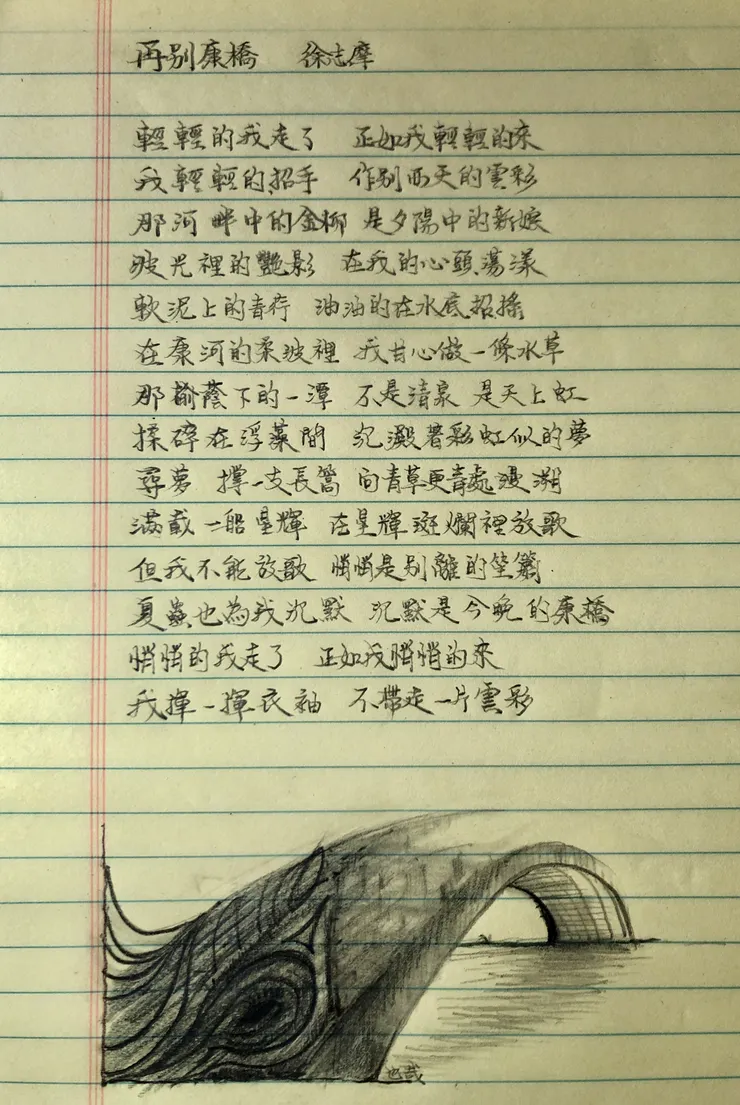 再别康橋 徐志摩
輕輕的我走了 正如我輕輕的來
我輕輕的招手 作别西天的雲彩
那河畔中的金柳 是夕陽中的新娘
波光裡的艷影 在我的心頭蕩漾
軟泥上的青荇 油油的在水底招搖
在康河的柔波裡 我甘心做一條水草
那榆蔭下的一潭 不是清泉 是天上虹
揉碎在浮藻間 沉澱著彩虹似的夢
尋夢 撐一支長篙 向青草更青處漫溯
滿載一船星輝 在星輝斑斕裡放歌
但我不能放歌 悄悄是别離的笙簫
夏蟲也為我沉默 沉默是今晚的康橋
悄悄的我走了 正如我悄悄的來
我揮一揮衣袖 不帶走一片雲彩
也哉